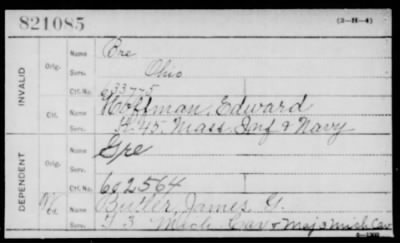 821085
(3-H-4)
INVALID
Orig.
Name Bre
Serv. Ohio
Ctf. No. 633775
Name Hoffman, Edward
Serv. K. 45. Mass Inf & Navy
Ctf. No.
DEPENDENT
Orig.
Name Gre
Serv.
Ctf. No. 602564
Name Butler, James G.
Serv. 3 Mich Cav & Maj 3 Mich Cav
Ctf. No.